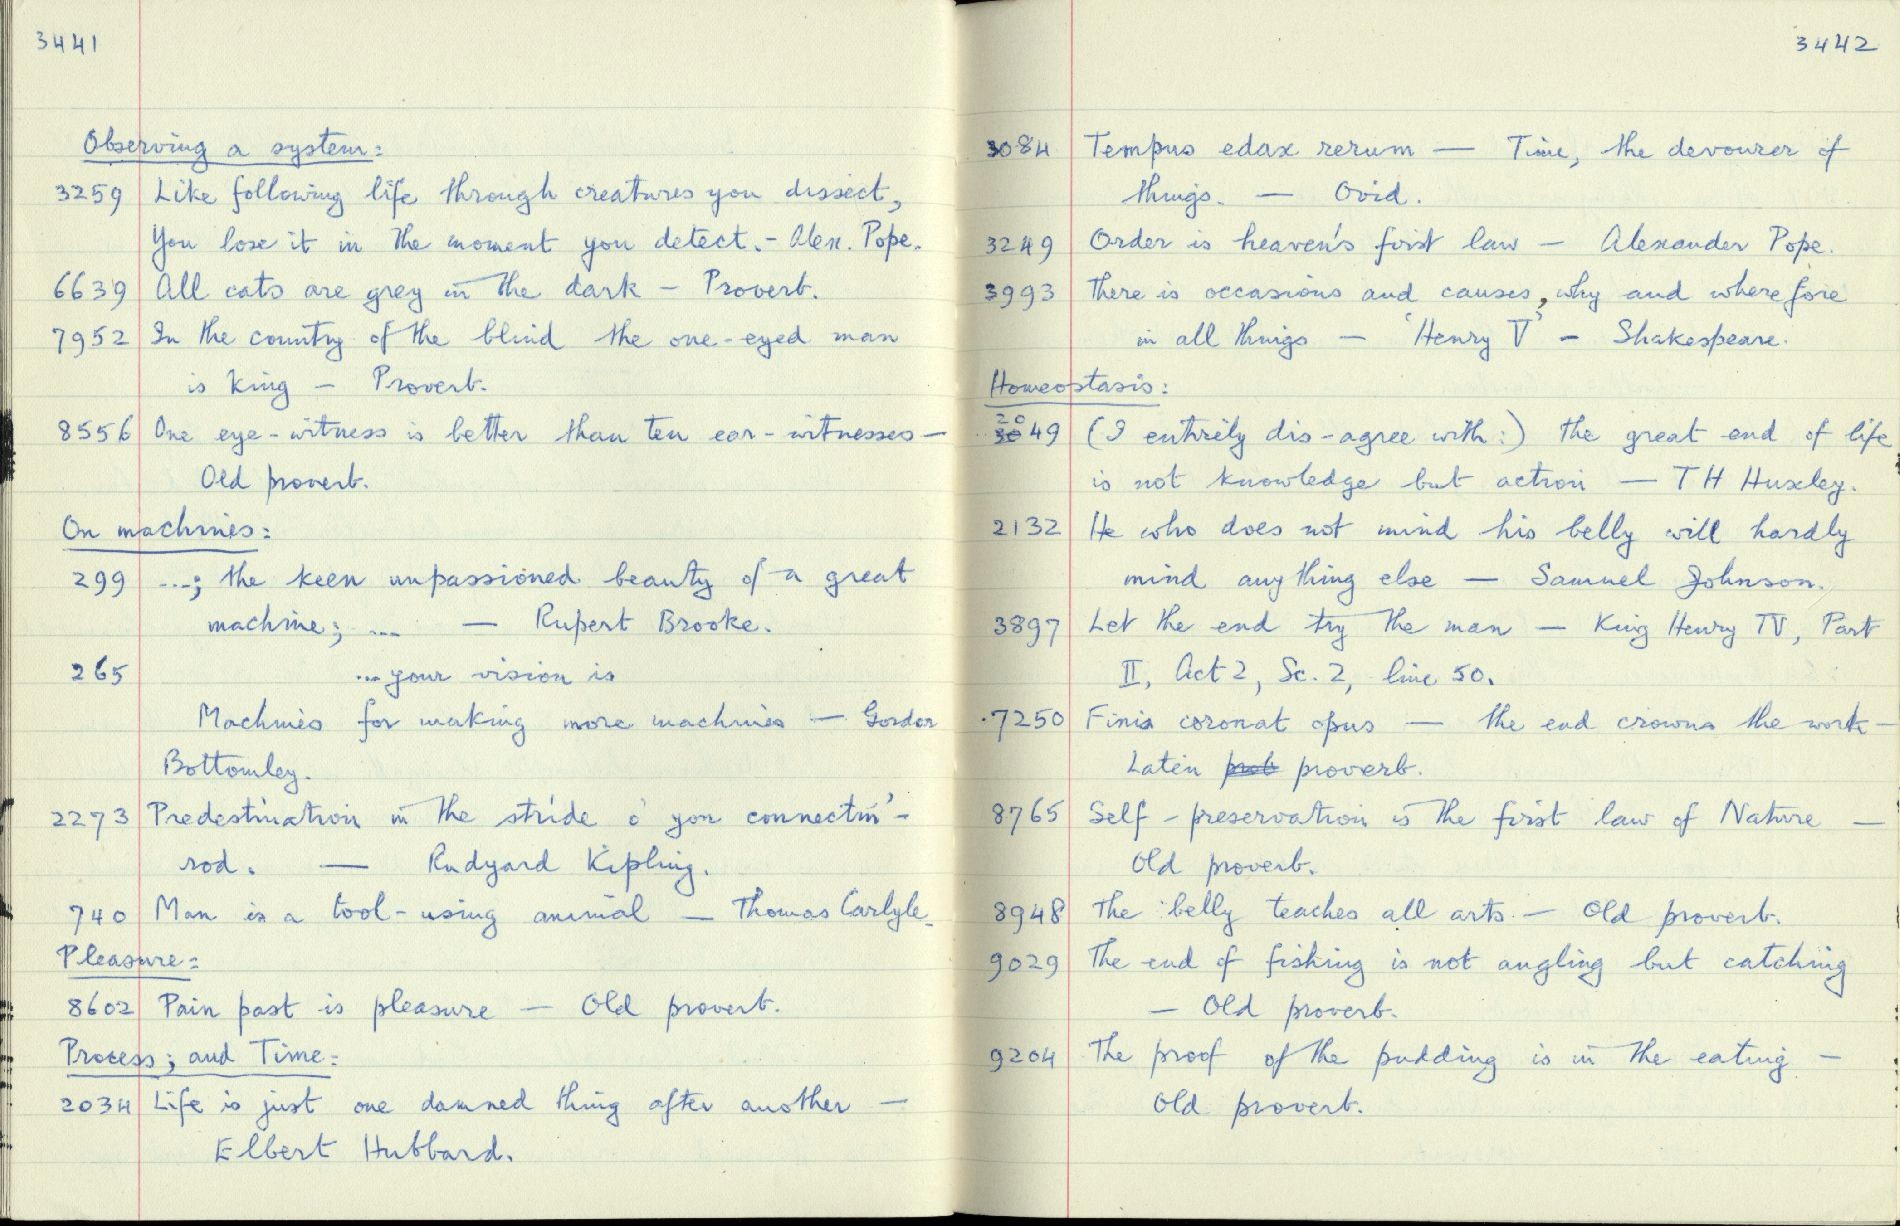 3441
Observing a system:
3259 Like following life through creatures you dissect,
You lose it in the moment you detect. - Alex. Pope.
6639 All cats are grey in the dark - Proverb.
7952 In the country of the blind the one-eyed man
is King - Proverb.
8556 One eye-witness is better than ten ear-witnesses -
Old proverb.
On machines:
299 ...; the keen unpassioned beauty of a great
machine; ... - Rupert Brooke.
265 ... your vision is
Machines for making more machines - Gordon
Bottomley.
2273 Predestination in the stride o' yon connectin'-
rod. - Rudyard Kipling.
740 Man is a tool-using animal - Thomas Carlyle.
Pleasure:
8602 Pain past is pleasure - Old proverb.
Process; and Time:
2034 Life is just one damned thing after another -
Elbert Hubbard.
3442
3084 Tempus edax rerum - Time, the devourer of
things. - Ovid.
3249 Order is heaven's first law - Alexander Pope.
3993 There is occasions and causes, why and wherefore
in all things - 'Henry V' - Shakespeare.
Homeostasis:
2049 (I entirely dis-agree with:) The great end of life
is not knowledge but action - T H Huxley.
2132 He who does not mind his belly will hardly
mind anything else - Samuel Johnson.
3897 Let the end try the man - King Henry IV, Part
II, Act 2, Sc. 2, line 50.
7250 Finis coronat opus - the end crowns the work -
Latin prob proverb.
8765 Self-preservation is the first law of Nature -
Old proverb.
8948 The belly teaches all arts - Old proverb.
9029 The end of fishing is not angling but catching
- Old proverb.
9204 The proof of the pudding is in the eating -
Old proverb.